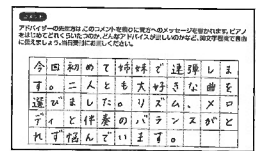 アドバイザーの先生方はこのコメントを頼りに貴方へのメッセージを書かれます。ピアノ
をはじめてどれくらいたつのか、どんなアドバイスが欲しいのかなど、
に伝えましょう。当日受付にお出しください。
今回初めて姉妹で連弾しま
す。二人とも大好きな曲を
選びました。リズム、メロ
ディと伴奏のバランスがと
れず悩んでいます。